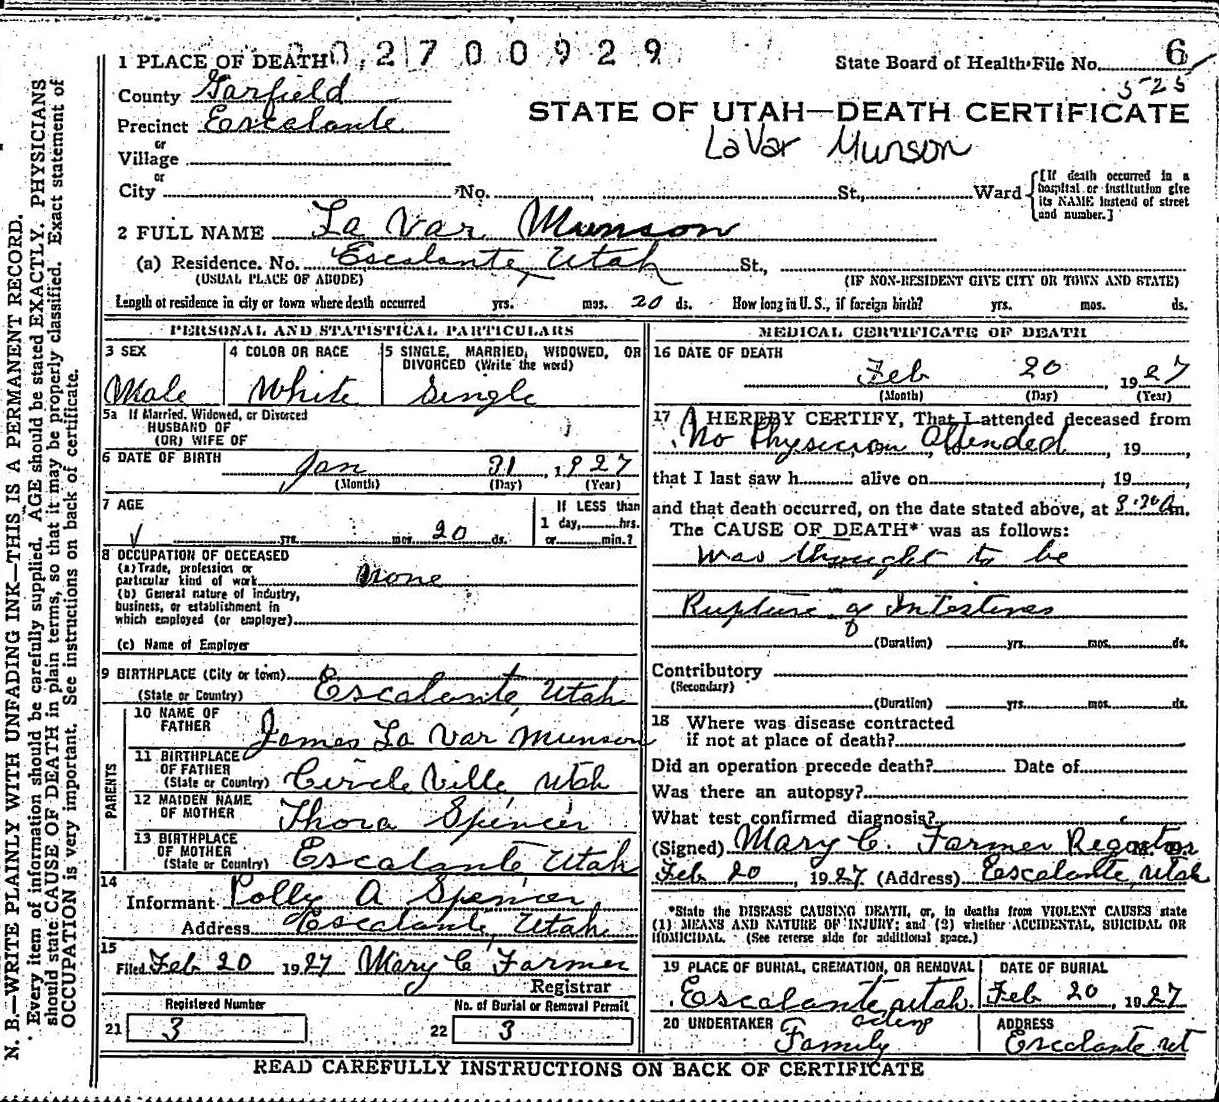 0 0 2 7 0 0 9 2 9
1 PLACE OF DEATH State Board of Health-File No. 6
525
County Garfield
STATE OF UTAH—DEATH CERTIFICATE
Precinct Escalante
LaVar Munson
or
Village
or
City No. St., Ward
[If death occurred in a hospital or institution give its NAME instead of street and number.]
2 FULL NAME La Var Munson
(a) Residence. No. Escalante, Utah St.,
(USUAL PLACE OF ABODE) (IF NON-RESIDENT GIVE CITY OR TOWN AND STATE)
Length of residence in city or town where death occurred yrs. mos. 20 ds. How long in U. S., if foreign birth? yrs. mos. ds.
PERSONAL AND STATISTICAL PARTICULARS
3 SEX
Male
4 COLOR OR RACE
White
5 SINGLE, MARRIED, WIDOWED, OR
DIVORCED (Write the word)
Single
5a If Married, Widowed, or Divorced
HUSBAND OF
(OR) WIFE OF
6 DATE OF BIRTH Jan 31, 1927
(Month) (Day) (Year)
7 AGE
yrs. mos. 20 ds.
If LESS than
1 day, hrs.
or min.?
8 OCCUPATION OF DECEASED
(a) Trade, profession or
particular kind of work None
(b) General nature of industry,
business, or establishment in
which employed (or employer)
(c) Name of Employer
9 BIRTHPLACE (City or town) Escalante, Utah
(State or Country)
PARENTS
10 NAME OF
FATHER James La Var Munson
11 BIRTHPLACE
OF FATHER
(State or Country) Circle Ville Utah
12 MAIDEN NAME
OF MOTHER Thora Spencer
13 BIRTHPLACE
OF MOTHER
(State or Country) Escalante Utah
14
Informant Polly A Spencer
Address Escalante, Utah
15
Filed Feb 20 1927 Mary C Farmer
Registrar
Registered Number
21 3
No. of Burial or Removal Permit
22 3
MEDICAL CERTIFICATE OF DEATH
16 DATE OF DEATH
Feb 20, 1927
(Month) (Day) (Year)
17 I HEREBY CERTIFY, That I attended deceased from
No Physician Attended, 19
that I last saw h alive on , 19
and that death occurred, on the date stated above, at m.
The CAUSE OF DEATH* was as follows:
was thought to be
Rupture of Intestines
(Duration) yrs. mos. ds.
Contributory
(Secondary)
(Duration) yrs. mos. ds.
18 Where was disease contracted
if not at place of death?
Did an operation precede death? Date of
Was there an autopsy?
What test confirmed diagnosis?
(Signed) Mary C. Farmer
Feb 20, 1927 (Address) Escalante, Utah
*State the DISEASE CAUSING DEATH, or, in deaths from VIOLENT CAUSES state
(1) MEANS AND NATURE OF INJURY; and (2) whether ACCIDENTAL, SUICIDAL OR
HOMICIDAL. (See reverse side for additional space.)
19 PLACE OF BURIAL, CREMATION, OR REMOVAL
Escalante, Utah
DATE OF BURIAL
Feb 20, 1927
20 UNDERTAKER
Family
ADDRESS
Escalante ut
READ CAREFULLY INSTRUCTIONS ON BACK OF CERTIFICATE
N. B.—WRITE PLAINLY WITH UNFADING INK—THIS IS A PERMANENT RECORD.
Every item of information should be carefully supplied. AGE should be stated EXACTLY. PHYSICIANS
should state CAUSE OF DEATH in plain terms, so that it may be properly classified. Exact statement of
OCCUPATION is very important. See instructions on back of certificate.